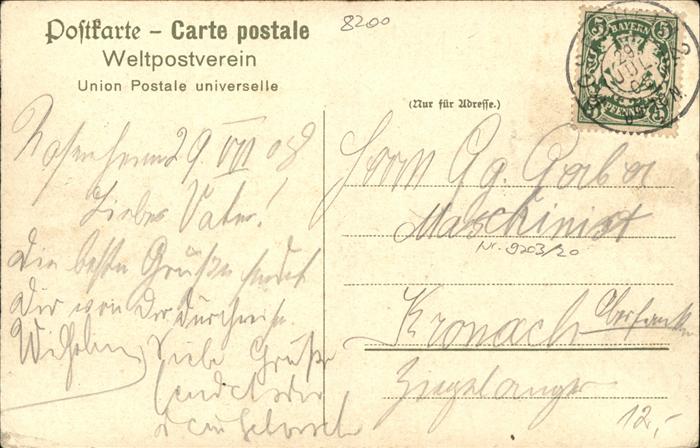 8200
Postkarte – Carte postale
Weltpostverein
Union Postale universelle
5 BAYERN 5
PFENNIG
29. JUL.
(Nur für Adresse.)
Rosenheim 29 VII 08
Lieber Vater!
Die besten Grüße sendet
Dir von der Durchreise
Wilhelm
Liebe Grüße
sendet
Herrn Gg.
Maschinist
Nr. 9203/20
Kronach Oberfranken
Ziegelanger
12,-